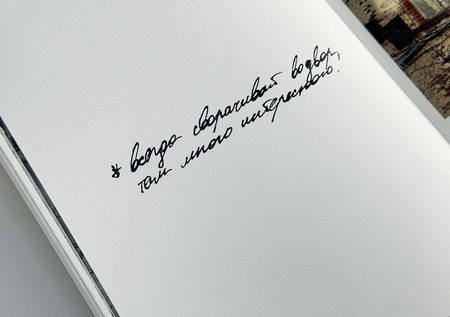 * всегда сворачивай во двор,
там много интересного!